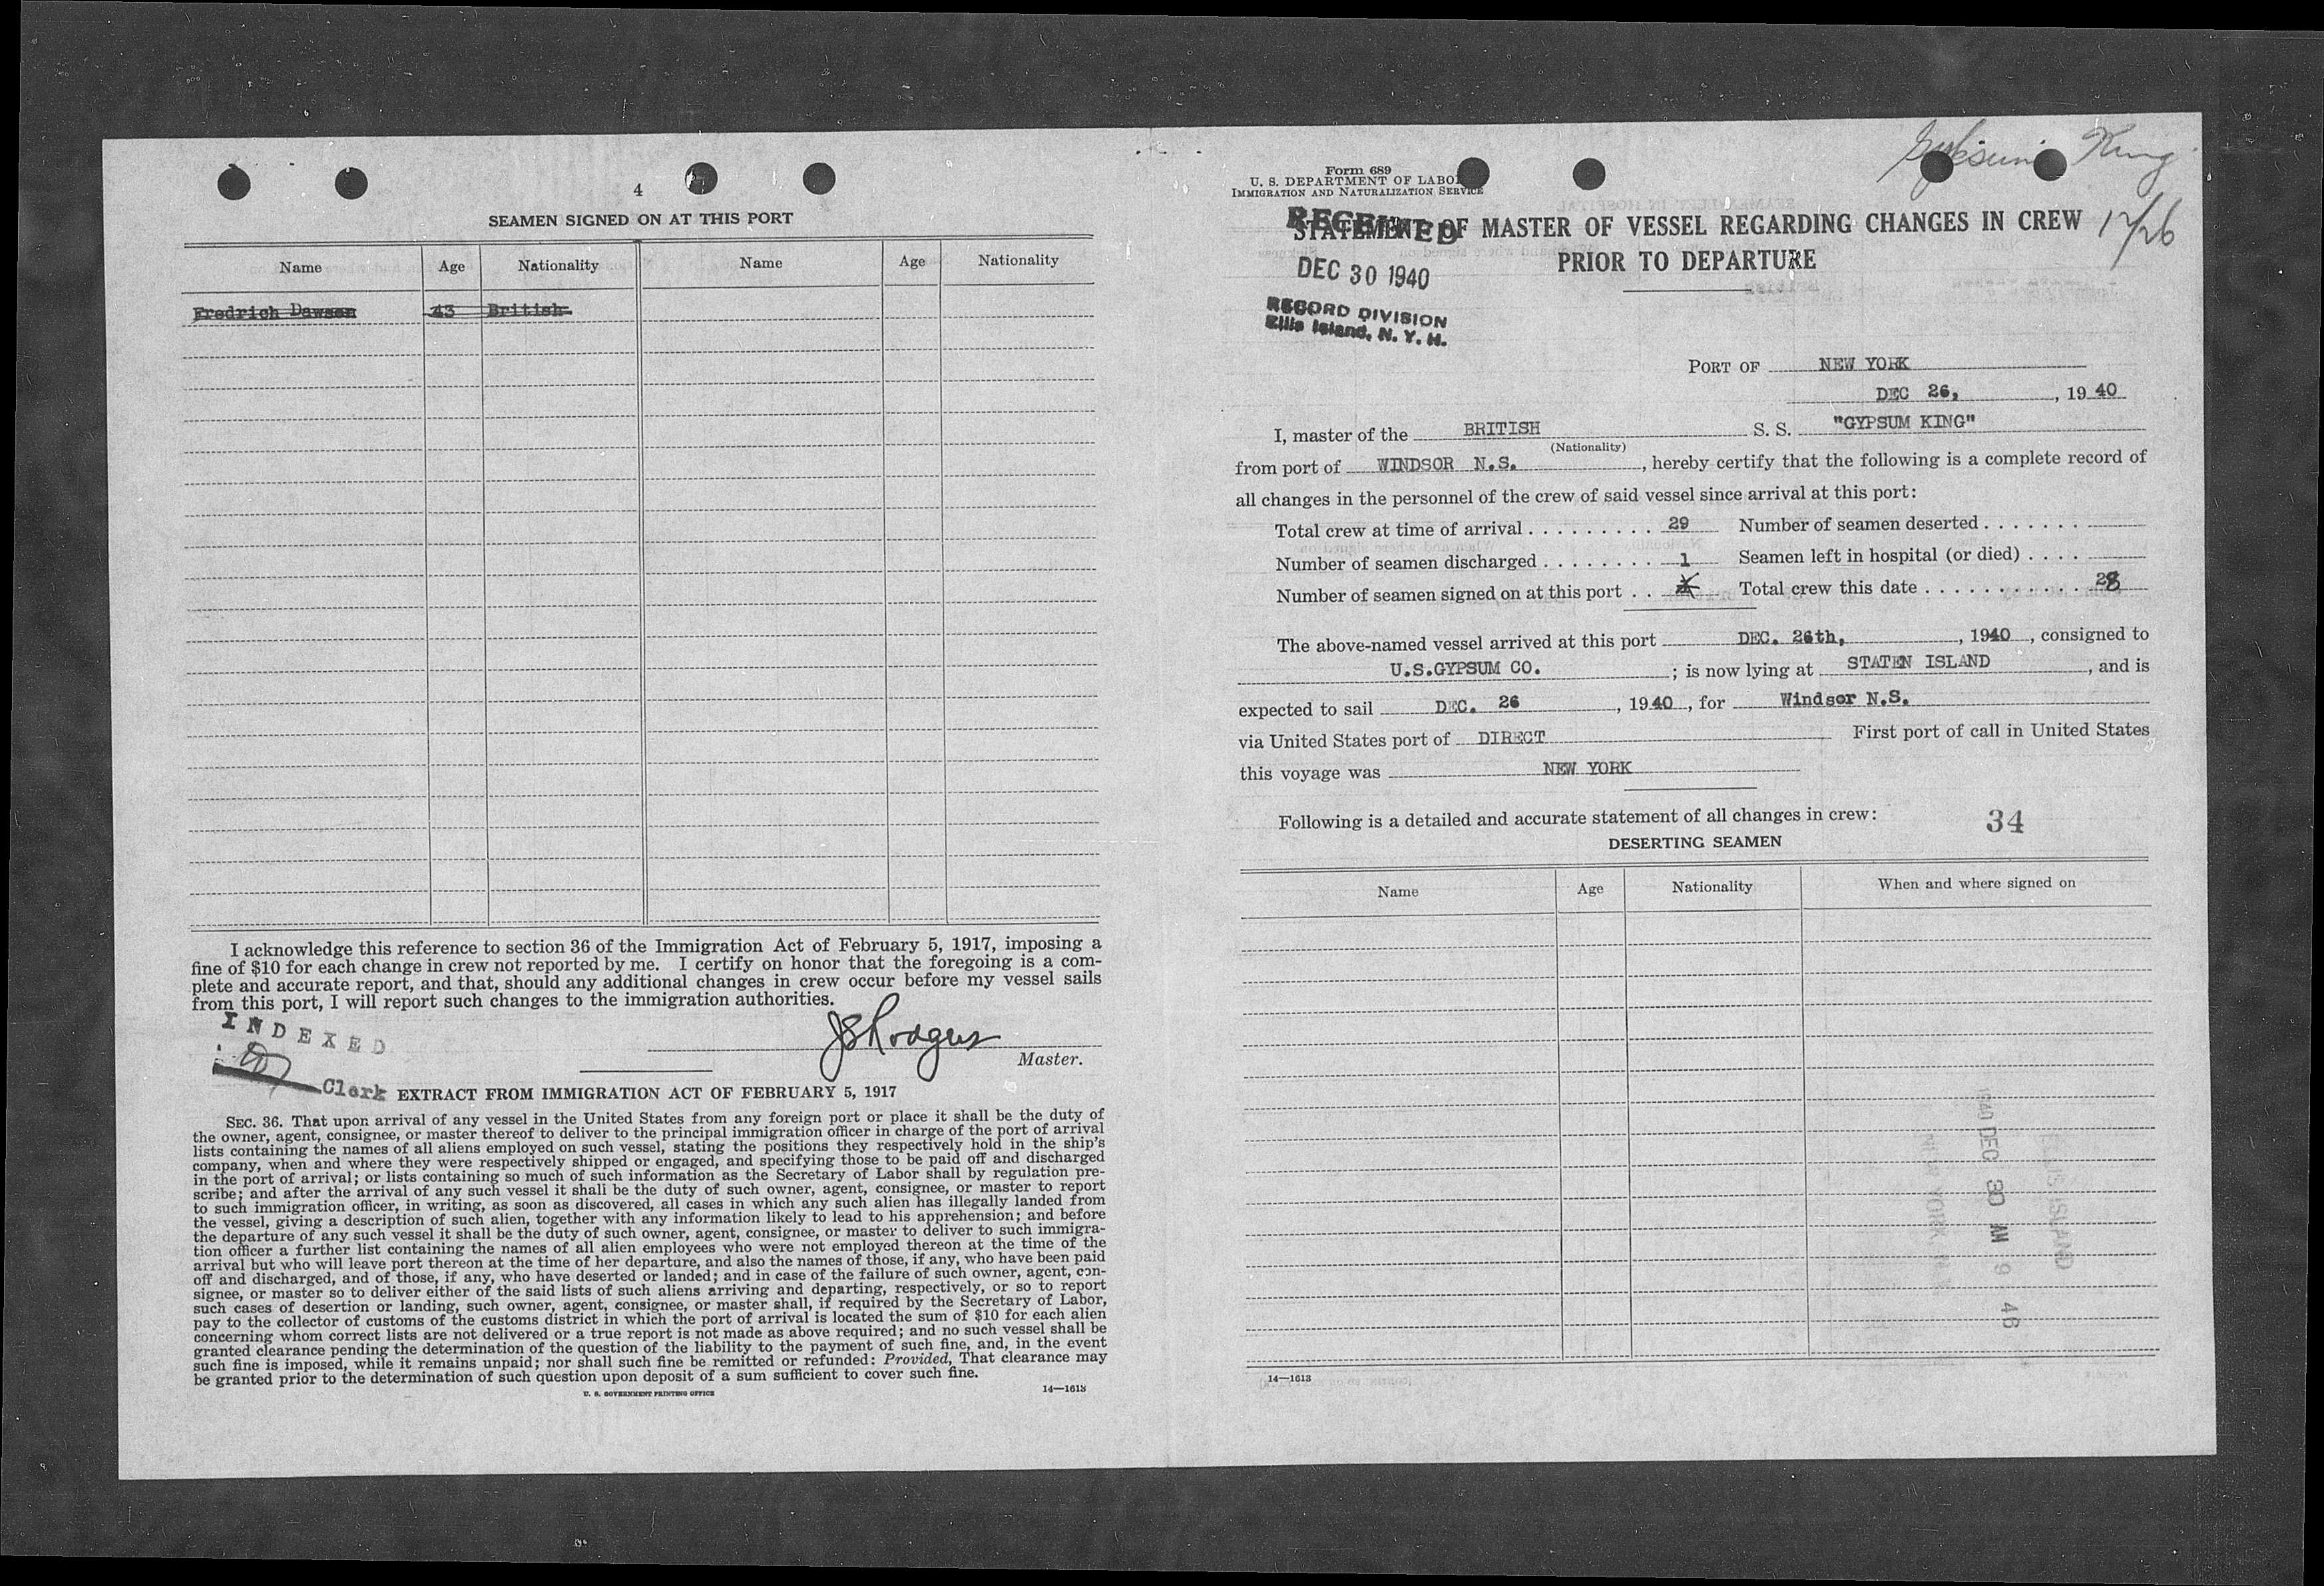 4
SEAMEN SIGNED ON AT THIS PORT
Name Age Nationality Name Age Nationality
Fredrich Dawson 43 British
I acknowledge this reference to section 36 of the Immigration Act of February 5, 1917, imposing a
fine of $10 for each change in crew not reported by me. I certify on honor that the foregoing is a com-
plete and accurate report, and that, should any additional changes in crew occur before my vessel sails
from this port, I will report such changes to the immigration authorities.
INDEXED
JSRodgers
Master.
Clerk
EXTRACT FROM IMMIGRATION ACT OF FEBRUARY 5, 1917
SEC. 36. That upon arrival of any vessel in the United States from any foreign port or place it shall be the duty of
the owner, agent, consignee, or master thereof to deliver to the principal immigration officer in charge of the port of arrival
lists containing the names of all aliens employed on such vessel, stating the positions they respectively hold in the ship's
company, when and where they were respectively shipped or engaged, and specifying those to be paid off and discharged
in the port of arrival; or lists containing so much of such information as the Secretary of Labor shall by regulation pre-
scribe; and after the arrival of any such vessel it shall be the duty of such owner, agent, consignee, or master to report
to such immigration officer, in writing, as soon as discovered, all cases in which any such alien has illegally landed from
the vessel, giving a description of such alien, together with any information likely to lead to his apprehension; and before
the departure of any such vessel it shall be the duty of such owner, agent, consignee, or master to deliver to such immigra-
tion officer a further list containing the names of all alien employees who were not employed thereon at the time of the
arrival but who will leave port thereon at the time of her departure, and also the names of those, if any, who have been paid
off and discharged, and of those, if any, who have deserted or landed; and in case of the failure of such owner, agent, con-
signee, or master so to deliver either of the said lists of such aliens arriving and departing, respectively, or so to report
such cases of desertion or landing, such owner, agent, consignee, or master shall, if required by the Secretary of Labor,
pay to the collector of customs of the customs district in which the port of arrival is located the sum of $10 for each alien
concerning whom correct lists are not delivered or a true report is not made as above required; and no such vessel shall be
granted clearance pending the determination of the question of the liability to the payment of such fine, and, in the event
such fine is imposed, while it remains unpaid; nor shall such fine be remitted or refunded: Provided, That clearance may
be granted prior to the determination of such question upon deposit of a sum sufficient to cover such fine.
U. S. GOVERNMENT PRINTING OFFICE 14—1613
Gypsum King
12/26
Form 689
U. S. DEPARTMENT OF LABOR
IMMIGRATION AND NATURALIZATION SERVICE
RECEIVED
STATEMENT OF MASTER OF VESSEL REGARDING CHANGES IN CREW
PRIOR TO DEPARTURE
DEC 30 1940
RECORD DIVISION
Ellis Island, N. Y. H.
PORT OF NEW YORK
DEC 26, , 19 40
I, master of the BRITISH S. S. "GYPSUM KING"
(Nationality)
from port of WINDSOR N.S. , hereby certify that the following is a complete record of
all changes in the personnel of the crew of said vessel since arrival at this port:
Total crew at time of arrival . . . . . . . . . 29 Number of seamen deserted . . . . . . .
Number of seamen discharged . . . . . . . . 1 Seamen left in hospital (or died) . . . .
Number of seamen signed on at this port . . Total crew this date . . . . . . . . . . . . 28
The above-named vessel arrived at this port DEC. 26th, , 1940 , consigned to
U.S.GYPSUM CO. ; is now lying at STATEN ISLAND , and is
expected to sail DEC. 26 , 1940 , for Windsor N.S.
via United States port of DIRECT First port of call in United States
this voyage was NEW YORK
Following is a detailed and accurate statement of all changes in crew:
34
DESERTING SEAMEN
Name Age Nationality When and where signed on
1940 DEC 30 AM 9 46
ELLIS ISLAND
14—1613